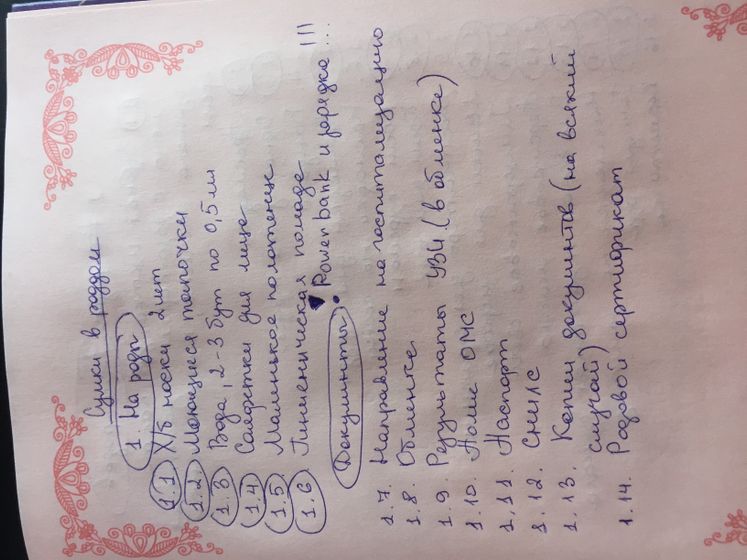 Сумки в роддом
1 На роды
1.1 Х/б носки 2 шт
1.2 Моющиеся тапочки
1.3 Вода, 2-3 бут по 0,5 мл
1.4 Салфетки для лица
1.5 Маленькое полотенце
1.6 Гигиеническая помада
• Power bank и зарядка !!!
Документы
1.7. Направление на госпитализацию
1.8. Обменка
1.9. Результаты УЗИ (в обменке)
1.10. Полис ОМС
1.11. Паспорт
1.12. СНИЛС
1.13. Копии документов (на всякий
случай)
1.14. Родовой сертификат